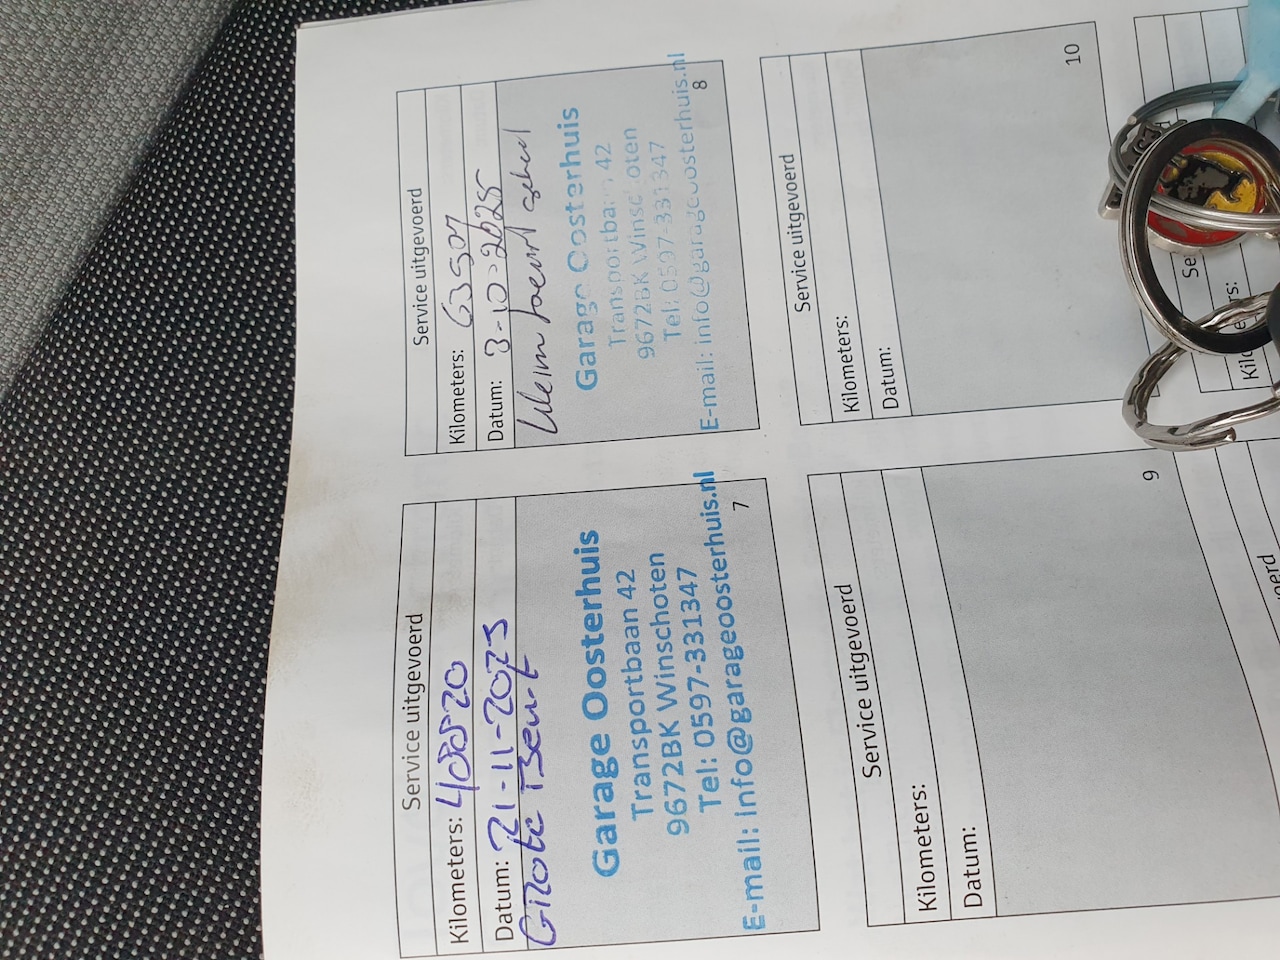 Service uitgevoerd
Kilometers: 40820
Datum: 21-11-2023
Grote Beurt
Garage Oosterhuis
Transportbaan 42
9672BK Winschoten
Tel: 0597-331347
E-mail: info@garageoosterhuis.nl
7
Service uitgevoerd
Kilometers: 63507
Datum: 3-10-2025
Klein beurt
Garage Oosterhuis
Transportbaan 42
9672BK Winschoten
Tel: 0597-331347
E-mail: info@garageoosterhuis.nl
8
Service uitgevoerd
Kilometers:
Datum:
9
Service uitgevoerd
Kilometers:
Datum:
10
Se